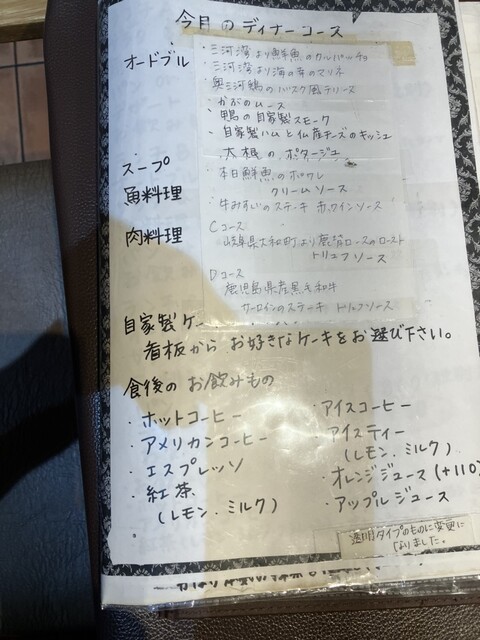 今月のディナーコース
オードブル
・三河湾より鮮魚のカルパッチョ
・三河湾より海の幸のマリネ
・奥三河鶏のバスク風テリーヌ
・かぶのムース
・鴨の自家製スモーク
・自家製ハムと仏産チーズのキッシュ
スープ
・大根のポタージュ
魚料理
・本日鮮魚のポワレ
クリームソース
肉料理
・牛みすじのステーキ 赤ワインソース
Cコース
岐阜県大和町より鹿背ロースのロースト
トリュフソース
Dコース
鹿児島県産黒毛和牛
サーロインのステーキ トリュフソース
自家製ケー
看板からお好きなケーキをお選び下さい。
食後のお飲みもの
・ホットコーヒー
・アメリカンコーヒー
・エスプレッソ
・紅茶
(レモン、ミルク)
・アイスコーヒー
・アイスティー
(レモン、ミルク)
・オレンジジュース(+110)
・アップルジュース
タイプのものに変更に
なりました。